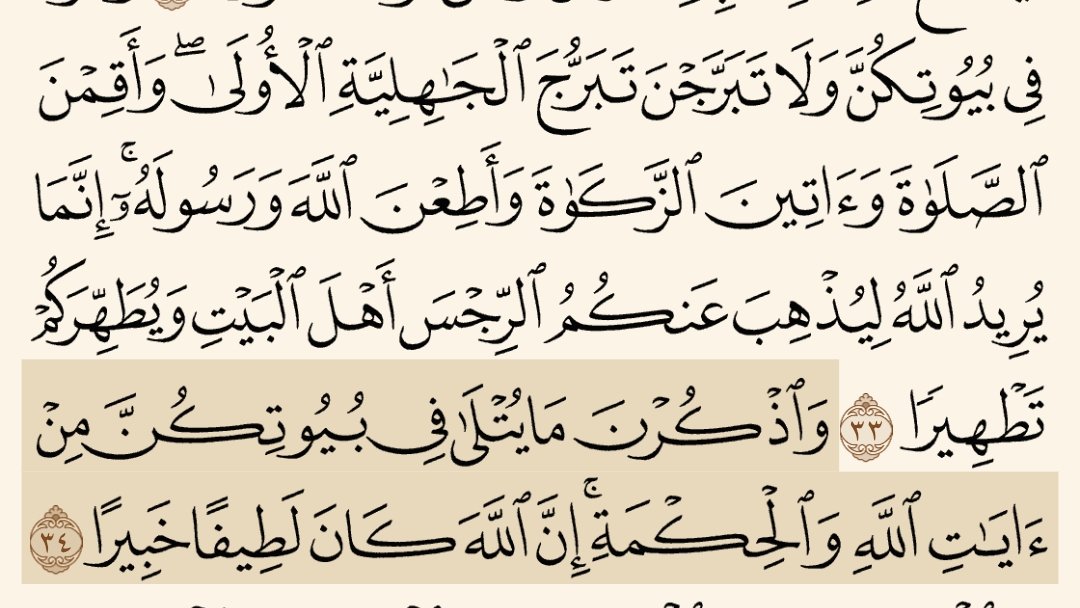 فِى بُيُوتِكُنَّ وَلَا تَبَرَّجْنَ تَبَرُّجَ ٱلْجَٰهِلِيَّةِ ٱلْأُولَىٰ ۖ وَأَقِمْنَ
ٱلصَّلَوٰةَ وَءَاتِينَ ٱلزَّكَوٰةَ وَأَطِعْنَ ٱللَّهَ وَرَسُولَهُۥٓ ۚ إِنَّمَا
يُرِيدُ ٱللَّهُ لِيُذْهِبَ عَنكُمُ ٱلرِّجْسَ أَهْلَ ٱلْبَيْتِ وَيُطَهِّرَكُمْ
تَطْهِيرًا ٣٣ وَٱذْكُرْنَ مَا يُتْلَىٰ فِى بُيُوتِكُنَّ مِنْ
ءَايَٰتِ ٱللَّهِ وَٱلْحِكْمَةِ ۚ إِنَّ ٱللَّهَ كَانَ لَطِيفًا خَبِيرًا ٣٤